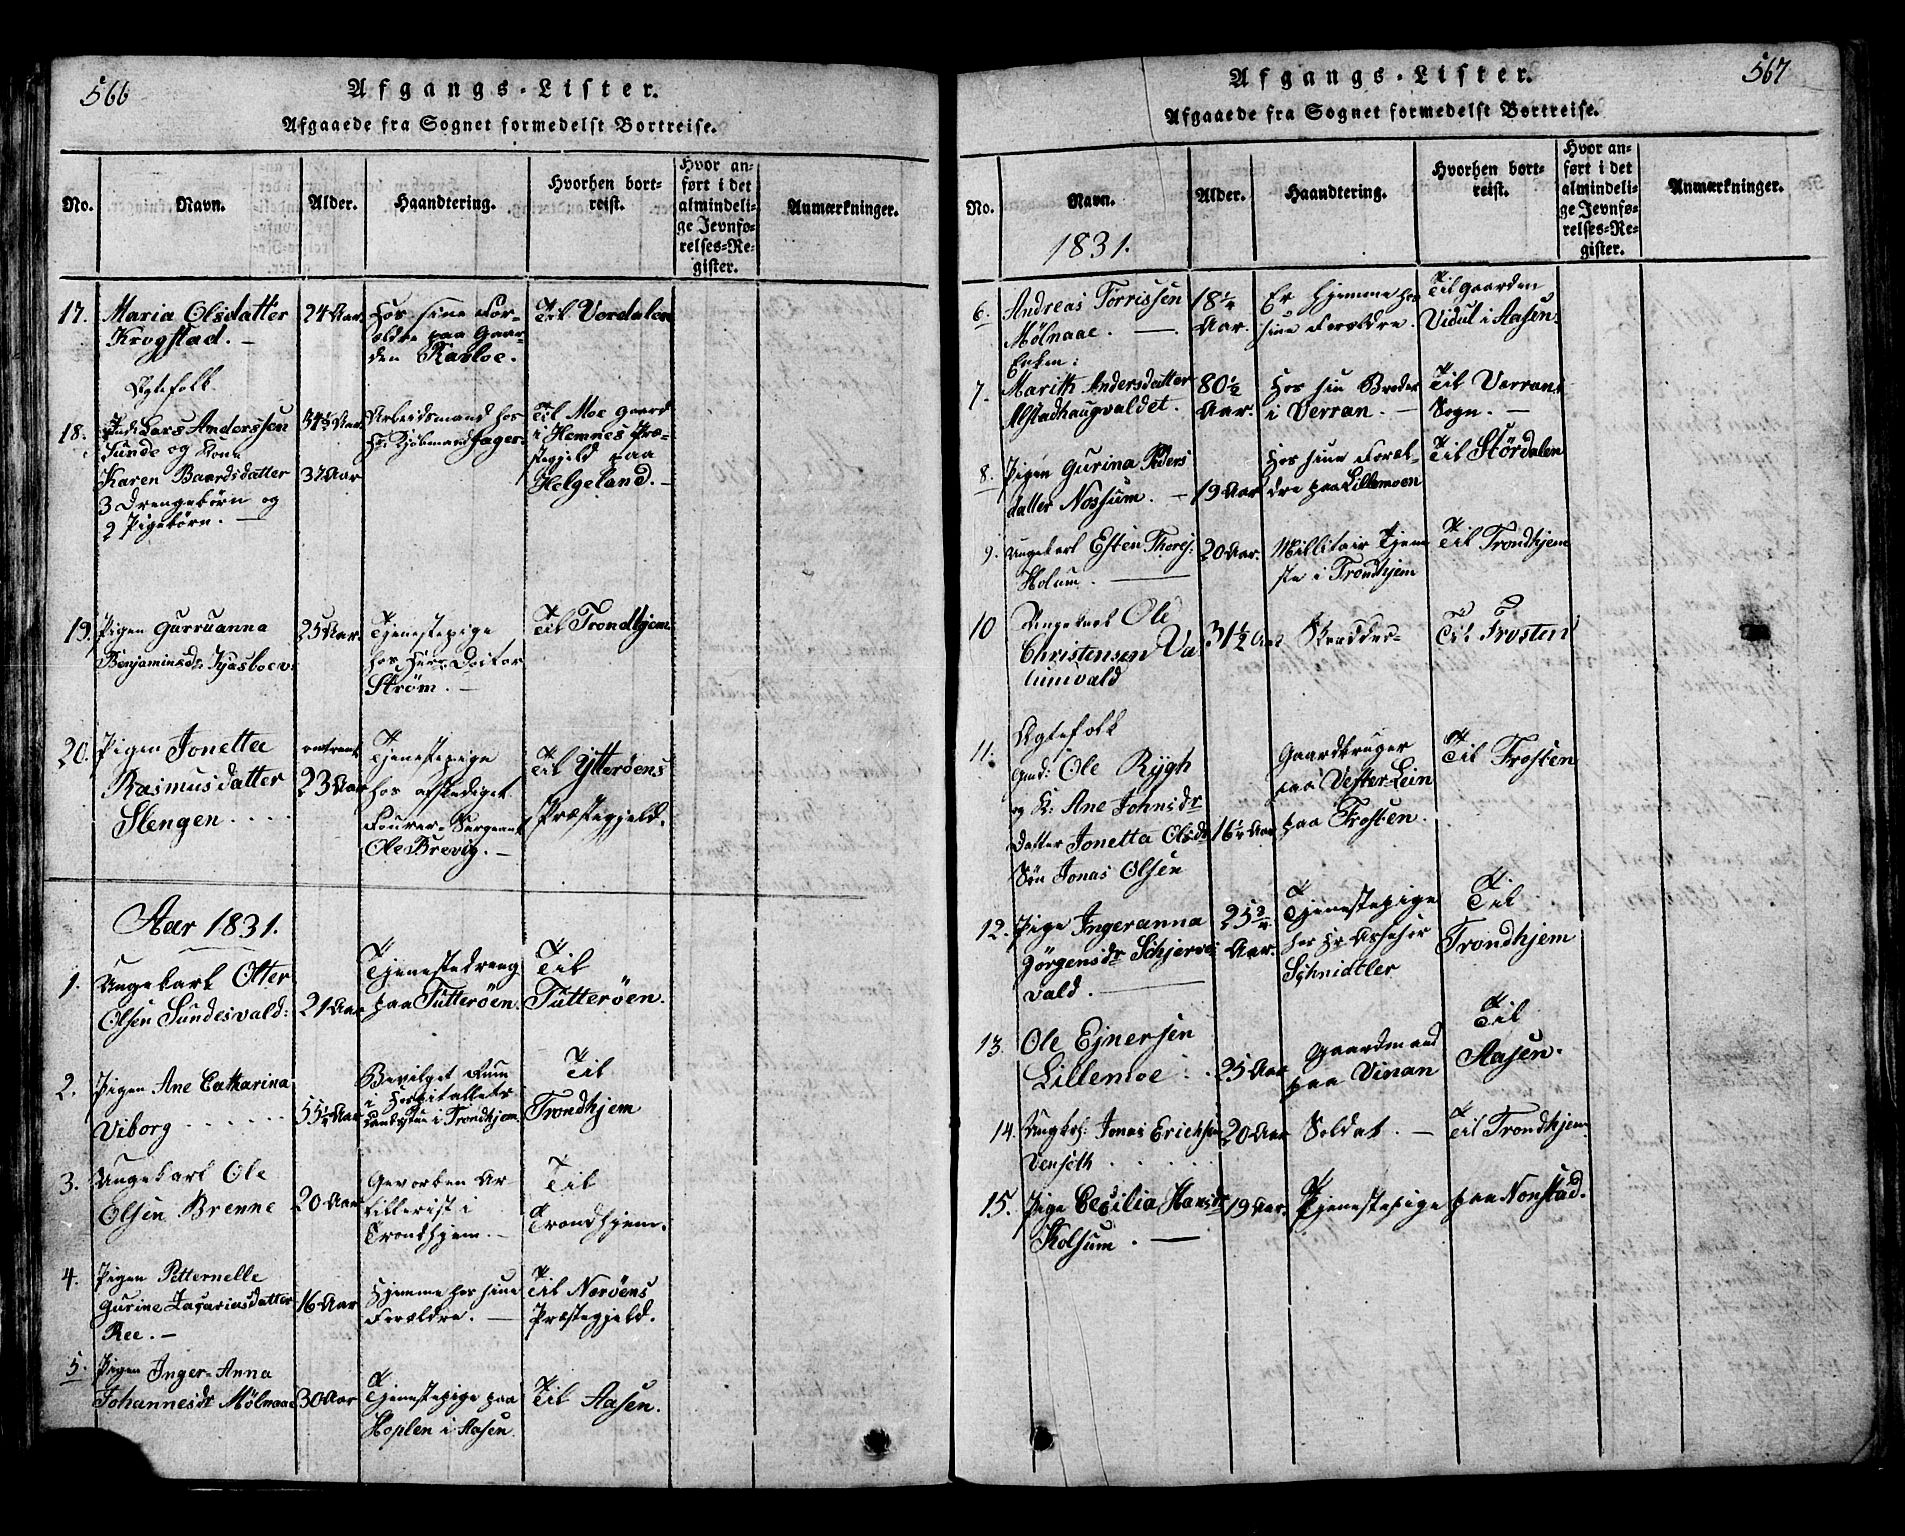 566
Afgangs-Lister.
Afgaaede fra Sognet formedelst Bortreise.
No.
Navn.
Alder.
Haandtering.
Hvorhen bort-
reist.
Hvor an-
ført i det
almindeli-
ge Jevnfø-
relses-Re-
gister.
Anmærkninger.
17.
Maria Olsdatter
Krogstad. —
24 Aar.
Hos sine For-
ældre paa Gaar-
den Ravloe.
Til Verdalen
18.
Ægtefolk.
Lars Anderssen
Sunde og Kone
Karen Baardsdatter
3 Drengebørn og
2 Pigebørn. —
37 Aar
Arbeidsmand hos
Jager.
Til Moe Gaard
i Hemnes Præ-
stegjeld paa
Helgeland. —
19.
Pigen Gurruanna
Benjaminsdr
25 Aar.
Tjenestepige
hos Herr Doctor
Strøm. —
Til Trondhjem.
20.
Pigen Jonetta
Rasmusdatter
Slengen . . . .
omtrent
23 Aar
Tjenestepige
hos afskediget
Fourer-Sergeant
Ole Brevig. —
Til Ytterøens
Præstegjeld.
Aar 1831.
1.
Ungekarl Otter
Olsen Sundesvald:
21 Aar
Tjenestedreng
paa Tutterøen.
Til
Tutterøen.
2.
Pigen Ane Catharina
Viborg . . . . . .
55¼ Aar
Bevilget Rum
i Hospitallets
i Trondhjem.
Til
Trondhjem
3.
Ungekarl Ole
Olsen Brenne
20 Aar
Gevorben Ar
tillerist i
Trondhjem. —
Til
Trondhjem.
4.
Pigen Petternelle
Gurine Zacariasdatter
Ree. —
16 Aar
Hjemme hos sine
Forældre. —
Til Nerøens
Præstegjeld.
5.
Pigen Inger-Anna
Johannesdr Mølnaae
30 Aar
Tjenestepige paa
Hoplen i Aasen
Til Aasen.
567
Afgangs-Lister.
Afgaaede fra Sognet formedelst Bortreise.
No.
Navn.
1831.
Alder.
Haandtering.
Hvorhen bort-
reist.
Hvor an-
ført i det
almindeli-
ge Jevnfø-
relses-Re-
gister.
Anmærkninger.
6.
Andreas Torrissen
Mølnaae. —
18¼
Aar.
Er hjemme hos
sine Forældre.
Til Gaarden
Vidul i Aasen.
7.
Enken:
Marith Andersdatter
Alstadhaugvaldet.
80½
Aar.
Hos sin Broder
i Verran. —
Til Verrans
Sogn. —
8.
Pigen Gurina Peders
datter Nossum. —
19 Aar
Hos sine Foræl-
dre paa Lillemoen
Til Størdalen
9.
Ungekarl Esten Thores:
Holum. —
20 Aar.
Millitair Tjene
ste i Trondhjem
Til Trondhjem
10
Ungekarl Ole
Christensen Va
lumvald
31½ Aar
Skredder-
Til Frosten
11.
Ægtefolk
Gmd: Ole Rygh
og K: Ane Johnsdr
Datter Jonetta Olsdr
Søn Jonas Olsen
16¼ Aar
Gaardbruger
paa Vester-Lein
paa Frosten.
Til Frosten
12.
Pige Ingeranna
Jørgensdr Schjerve
vald. —
25
Aar.
Tjenestepige
hos Hr Assesser
Schnidtler
Til
Trondhjem
13.
Ole Ejnersen
Lillemoe . .
25 Aar
Gaardmand
paa Vinan
Til
Aasen.
14.
Ungkrl: Jonas Erichsen
Venseth . . . .
20 Aar
Soldat. —
Til Trondhjem
15.
Pige Cecilia Hansdr
Kolsum. —
19 Aar.
Tjenestepige
paa Nonstad.